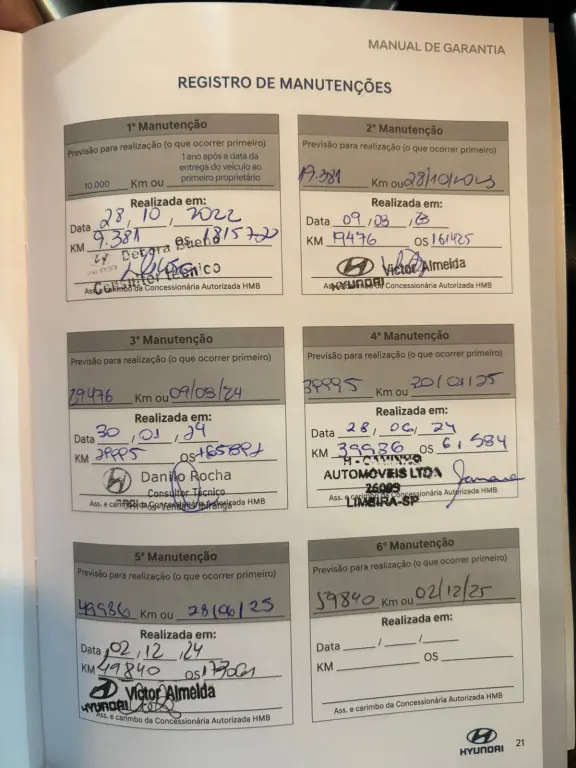 MANUAL DE GARANTIA
REGISTRO DE MANUTENÇÕES
1ª Manutenção
Previsão para realização (o que ocorrer primeiro)
1 ano após a data da
entrega do veículo ao
10.000 Km ou primeiro proprietário
Realizada em:
Data 28, 10, 2022
KM 9.381 OS 1815720
Debora Bueno
Consultor Técnico
Ass. e carimbo da Concessionária Autorizada HMB
2ª Manutenção
Previsão para realização (o que ocorrer primeiro)
19.381 Km ou 28/10/2023
Realizada em:
Data 09, 03, 23
KM 19476 OS 161425
Victor Almeida
HYUNDAI
Ass. e carimbo da Concessionária Autorizada HMB
3ª Manutenção
Previsão para realização (o que ocorrer primeiro)
29476 Km ou 09/03/24
Realizada em:
Data 30, 01, 24
KM 29995 OS
Danilo Rocha
Consultor Técnico
Ass. e carimbo da Concessionária Autorizada HMB
4ª Manutenção
Previsão para realização (o que ocorrer primeiro)
39995 Km ou 30/01/25
Realizada em:
Data 28, 06, 24
KM 39986 OS 61584
AUTOMÓVEIS LTDA
LIMEIRA-SP
Ass. e carimbo da Concessionária Autorizada HMB
5ª Manutenção
Previsão para realização (o que ocorrer primeiro)
49986 Km ou 28/06/25
Realizada em:
Data 02, 12, 24
KM 49840 OS
Victor Almeida
HYUNDAI
Ass. e carimbo da Concessionária Autorizada HMB
6ª Manutenção
Previsão para realização (o que ocorrer primeiro)
59840 Km ou 02/12/25
Realizada em:
Data / /
KM OS
Ass. e carimbo da Concessionária Autorizada HMB
HYUNDAI
21